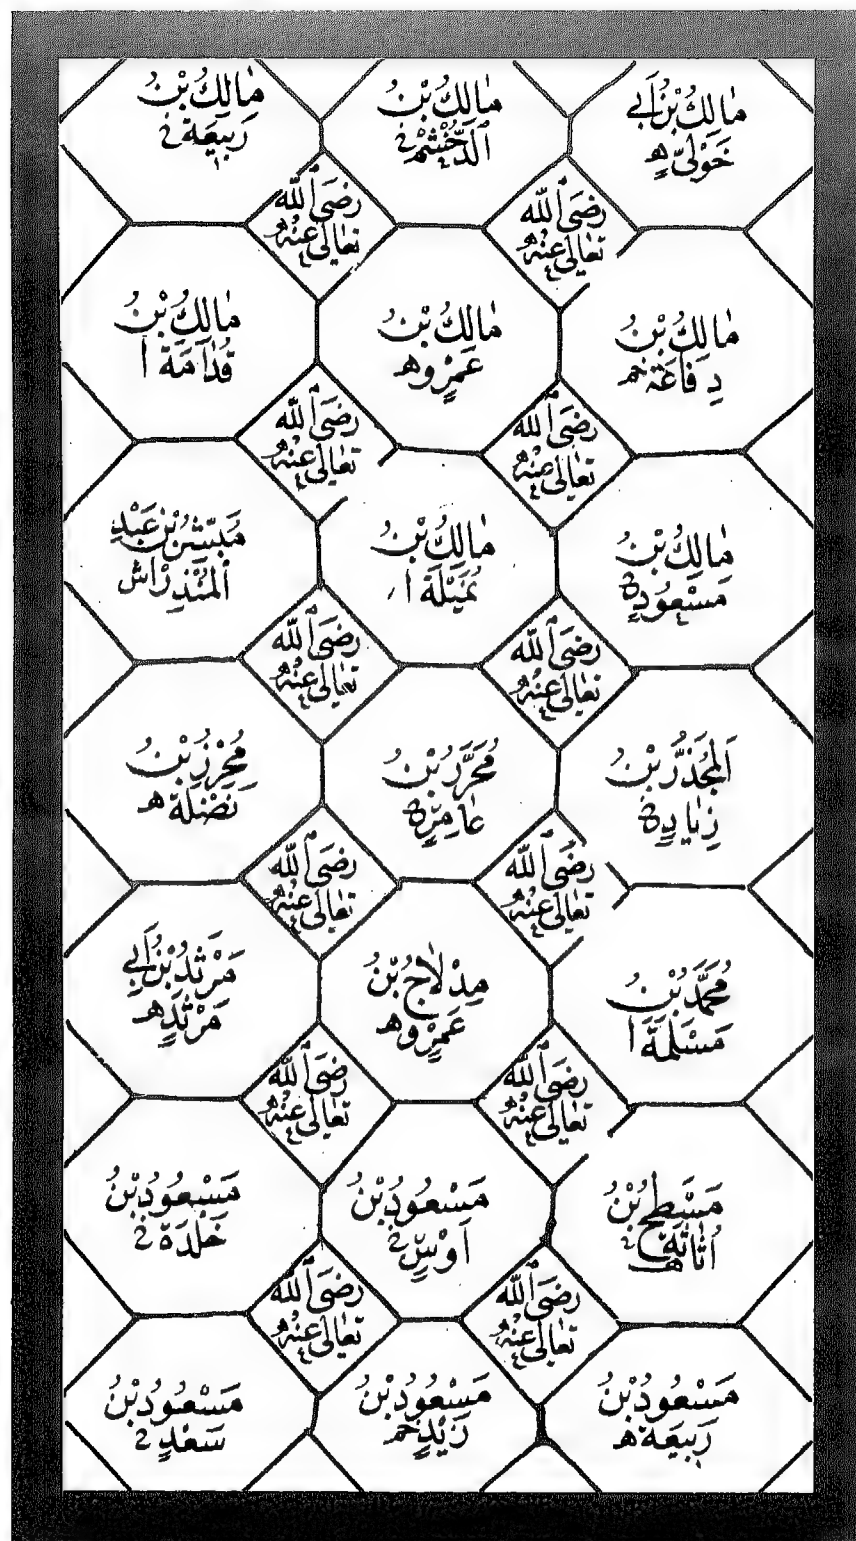 مَالِكُ بْنُ أَبِي
خَوْلِيٍّ ھ
مَالِكُ بْنُ
الدُّخْشُمْ خ
مَالِكُ بْنُ
رَبِيعَة خ
رَضِىَ اللّٰه
تَعَالىٰ عَنْهُ
رَضِىَ اللّٰه
تَعَالىٰ عَنْهُ
مَالِكُ بْنُ
رِفَاعَة خم
مَالِكُ بْنُ
عَمْرٍو ھ
مَالِكُ بْنُ
قُدَامَة ا
رَضِىَ اللّٰه
تَعَالىٰ عَنْهُ
رَضِىَ اللّٰه
تَعَالىٰ عَنْهُ
مَالِكُ بْنُ
مَسْعُودٍ
مَالِكُ بْنُ
نُمَيْلَة ا
مُبَشِّرُ بْنُ عَبْدِ
الْمُنْذِر اش
رَضِىَ اللّٰه
تَعَالىٰ عَنْهُ
رَضِىَ اللّٰه
تَعَالىٰ عَنْهُ
اَلْمُجَذَّرُ بْنُ
زِيَادٍ
مُحَرَّرُ بْنُ
عَامِرٍ
مُحْرِزُ بْنُ
نَضْلَة ھ
رَضِىَ اللّٰه
تَعَالىٰ عَنْهُ
رَضِىَ اللّٰه
تَعَالىٰ عَنْهُ
مُحَمَّدُ بْنُ
مَسْلَمَة ا
مِدْلَاجُ بْنُ
عَمْرٍو ھ
مَرْثَدُ بْنُ أَبِي
مَرْثَدٍ ھ
رَضِىَ اللّٰه
تَعَالىٰ عَنْهُ
رَضِىَ اللّٰه
تَعَالىٰ عَنْهُ
مِسْطَحُ بْنُ
اُثَاثَة ھ
مَسْعُودُ بْنُ
اَوْسٍ خ
مَسْعُودُ بْنُ
خَلْدَة خ
رَضِىَ اللّٰه
تَعَالىٰ عَنْهُ
رَضِىَ اللّٰه
تَعَالىٰ عَنْهُ
مَسْعُودُ بْنُ
رَبِيعَة ھ
مَسْعُودُ بْنُ
زَيْدٍ خم
مَسْعُودُ بْنُ
سَعْدٍ خ